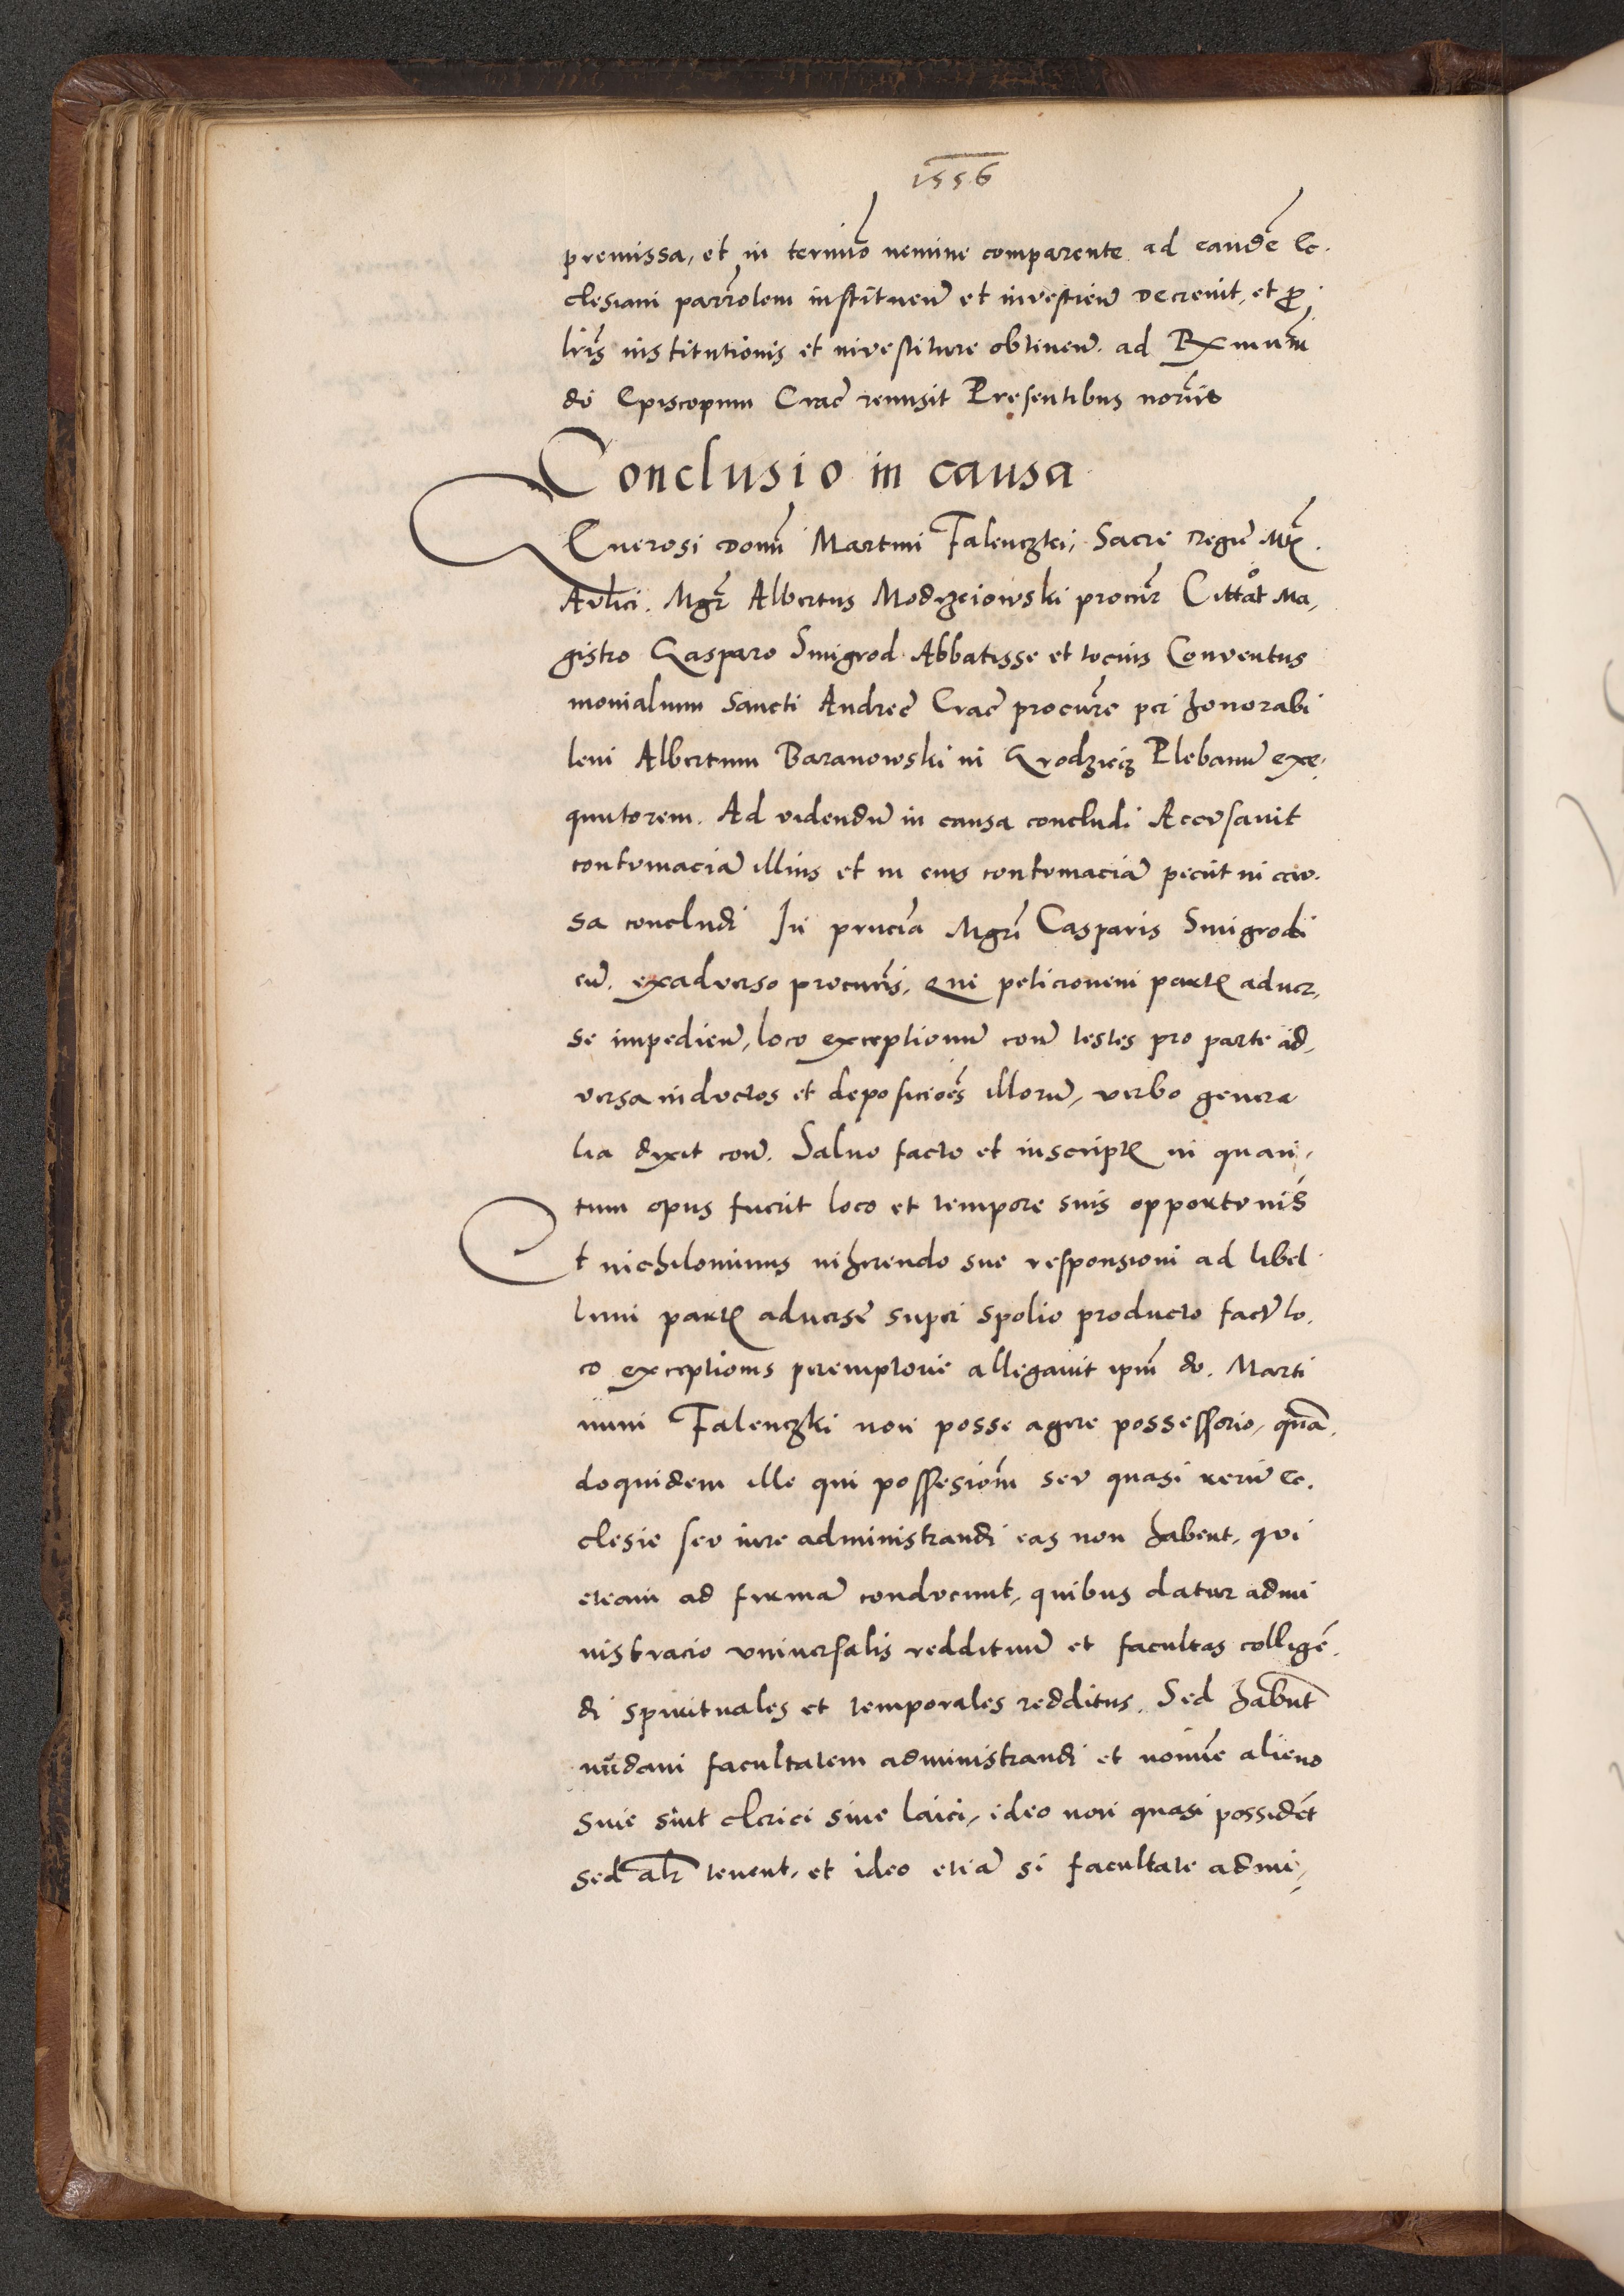 1556
premissa, et in termīo nemine comparente ad eandē Ec.
clesiam parrolem instituen̄ et investien̄ decrevit, et ꝓ
lrīs institutionis et investiture obtinen̄ ad Rxmum
dō Episcopum Crac̄ remisit Presentibus
Conclusio in causa
Generosi domī Martini Falenczki, Sacre Regie
Aulici. Mgr̄ Albertus Modrzeiowski procūr Cittat̊ Ma,
gistro Gasparo Smigrod Abbatisse et tocius Conventus
monialium Sancti Andreē Crac̄ procur̄e per honorabi
lem Albertum Baranowski in Grodziecz Plebanū exe,
quutorem. Ad videndū in causa concludi Accusavit
contumaciā illius et in eius contumaciā peciit in cau.
sa concludi In pn̄cia Mgrī Casparis Smigrodi
cū. exadverso procur̄is, qui peticionem partꝭ adver,
se impedien̄, loco exceptionū con̄ testes pro parte ad,
versa inductos et deposicioēs illorū, verbo genera
lia dixit con̄. Salvo facto et inscriptꝭ in quan,
tum opus fuerit loco et tempore suis opportunis
Et nichilominus inherendo sue responsioni ad libel
lum partꝭ adverse super spolio producto factē lo.
co exceptionis peremptorie allegavit ipm̄ do. Marti
num Falenczki non posse agere possessorio, quā.
doquidem ille qui possesiom̄ seu quasi rerū Ec.
clesie seu iure administrandi eas non habent, qui
eteam ad firmā conducunt, quibus datur admi
nistracio universalis reddituū et facultas colligē.
di spirituales et temporales redditus. Sed habn̄t
nudam facultatem administrandi et nomīe alieno
sive sint clerici sive laici, ideo non quasi possidēt
sed alr̄ tenent, et ideo etiā si facultate admi,